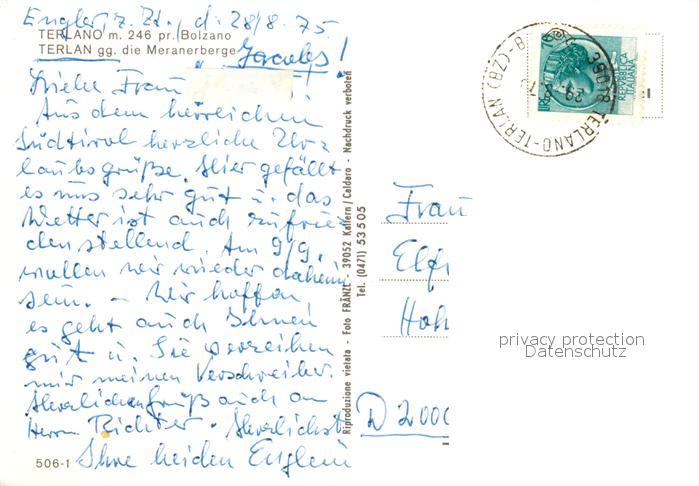 Engler, z. Zt., d. 28/8.75.
TERLANO m. 246 pr. Bolzano
TERLAN gg. die Meranerberge
Liebe Frau
Aus dem herrlichen
Südtirol herzliche Ur=
laubsgrüße. Hier gefällt
es uns sehr gut u. das
Wetter ist auch zufrie=
denstellend. Am 9/9.
wollen wir wieder daheim
sein. – Wir hoffen,
es geht auch Ihnen
gut u. Sie verzeihen
mir meinen Verschreiber.
Herzlichen Gruß auch an
Herrn Richter. Herzlichst
Ihre beiden Englein
506-1
Riproduzione vietata - Foto FRÄNZL - 39052 Kaltern / Caldaro - Nachdruck verboten
Tel. (0471) 53505
39018 TERLANO-TERLAN (BZ)
REPUBBLICA
ITALIANA
Frau
Elfr
Hoh
D 2000
privacy protection
Datenschutz